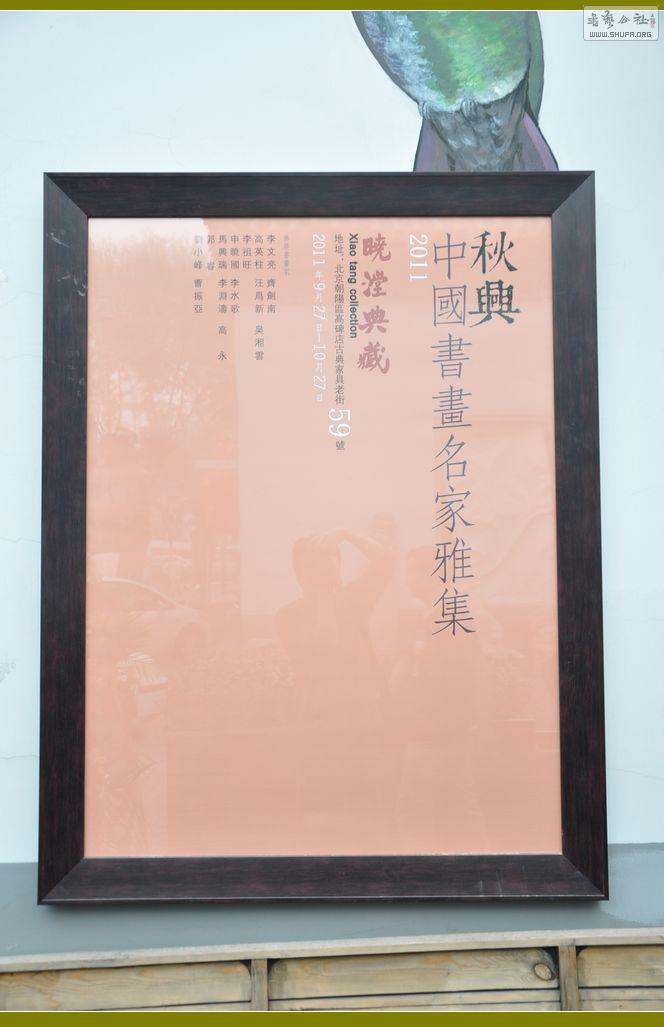 秋興
中國書畫名家雅集
2011
曉瀅典藏
Xiao tang collection
地址：北京朝陽區高碑店古典家具老街59號
2011年9月27日—10月27日
參展書畫家
李文亮 齊劍南
高英柱 汪爲新 吴湘雲
李祖旺
申曉國 李水歌
馬興瑞 李淵濤 高 永
郭 睿
劉小峰 曹振亞
WWW.SHUFA.ORG